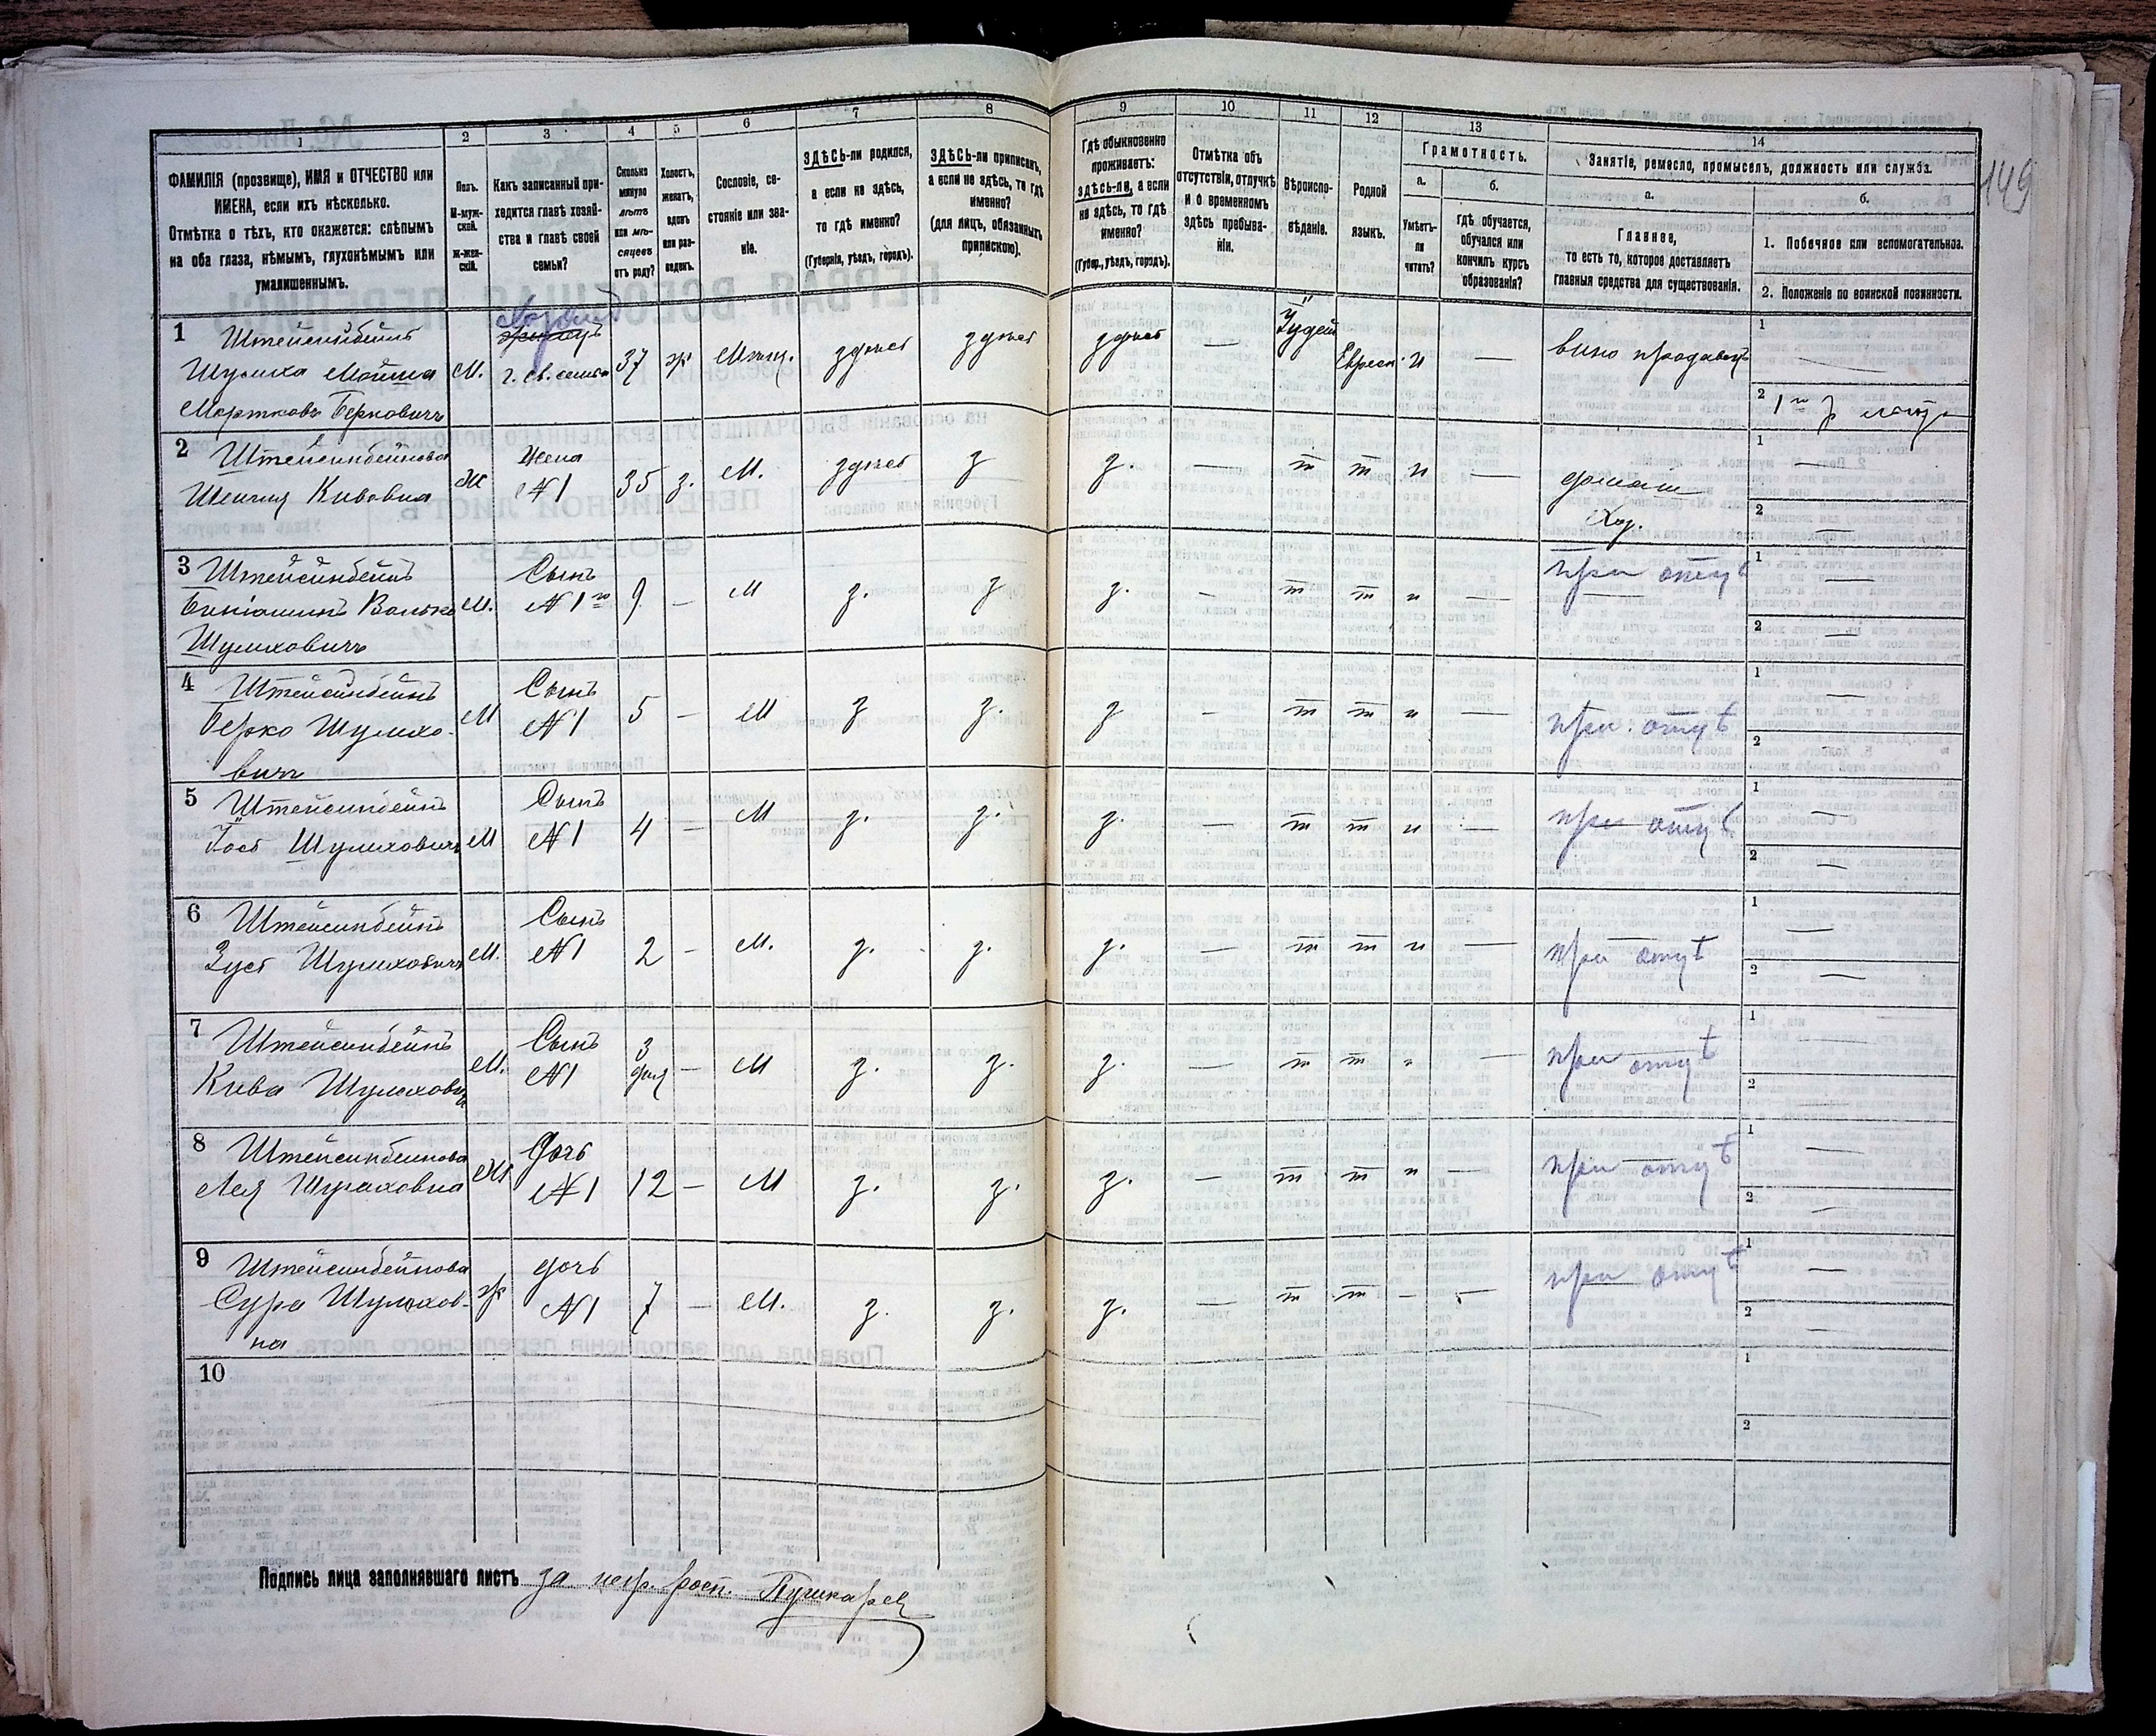 149
1 2 3 4 5 6 7 8 9 10 11 12 13 14
ФАМИЛІЯ (прозвище), ИМЯ и ОТЧЕСТВО или
ИМЕНА, если ихъ нѣсколько.
Отмѣтка о тѣхъ, кто окажется: слѣпымъ
на оба глаза, нѣмымъ, глухонѣмымъ или
умалишеннымъ.
Полъ.
М-муж-
ской.
Ж-жен-
скій.
Какъ записанный при-
ходится главѣ хозяй-
ства и главѣ своей
семьи?
Сколько
минуло
лѣтъ
или мѣ-
сяцевъ
отъ роду?
Холостъ,
женатъ,
вдовъ
или раз-
веденъ.
Сословіе, со-
стояніе или зва-
ніе.
ЗДѢСЬ-ли родился,
а если не здѣсь,
то гдѣ именно?
(Губернія, уѣздъ, городъ).
ЗДѢСЬ-ли приписанъ,
а если не здѣсь, то гдѣ
именно?
(для лицъ, обязанныхъ
припискою).
Гдѣ обыкновенно
проживаетъ:
здѣсь-ли, а если
не здѣсь, то гдѣ
именно?
(Губер., уѣздъ, городъ).
Отмѣтка объ
отсутствіи, отлучкѣ
и о временномъ
здѣсь пребыва-
ніи.
Вѣроиспо-
вѣданіе.
Родной
языкъ.
Грамотность.
а.
Умѣетъ-
ли
читать?
б.
гдѣ обучается,
обучался или
кончилъ курсъ
образованія?
Занятіе, ремесло, промыселъ, должность или служба.
а.
Главное,
то есть то, которое доставляетъ
главныя средства для существованія.
б.
1. Побочное или вспомогательное.
2. Положеніе по воинской повинности.
1 Штейсинбейнъ
Шулиха Мошка
Мортковъ Берковичъ
М. г. св. семьи 37 ж Мѣщ. здѣсь здѣсь здѣсь — Іудей Еврейс. н — вино продавецъ
1 —
2
2 Штейсинбейнова
Шейчия Кивовна
Ж Жена №1 35 з. М. здѣсь з з. — т т н — домаш.
хоз.
1 —
2 —
3 Штейсинбейнъ
Биніоминъ Волько
Шулиховичъ
М. Сынъ №1го 9 — М з. з з. — т т н — при отцѣ
1 —
2 —
4 Штейсинбейнъ
Берко Шулихо-
вичъ
М Сынъ №1 5 — М з з. з — т т н — при отцѣ
1 —
2 —
5 Штейсинбейнъ
Іось Шулиховичъ
М Сынъ №1 4 — М з. з. з. — т т н — при отцѣ
1 —
2 —
6 Штейсинбейнъ
Зусь Шулиховичъ
М. Сынъ №1 2 — М. з. з. з. — т т н — при отцѣ
1 —
2 —
7 Штейсинбейнъ
Кива Шулихович
М. Сынъ №1 3 дня — М з. з. з. — т т н — при отцѣ
1 —
2 —
8 Штейсинбейнова
Лея Шулиховна
Дочь №1 12 — М з. з. з. — т т н — при отцѣ
1 —
2 —
9 Штейсинбейнова
Сура Шулихов-
на
ж дочь №1 7 — М. з. з. з. — т т — — при отцѣ
1 —
2 —
10
1
2
Подпись лица заполнявшаго листъ за негр. росп. Пушкарев